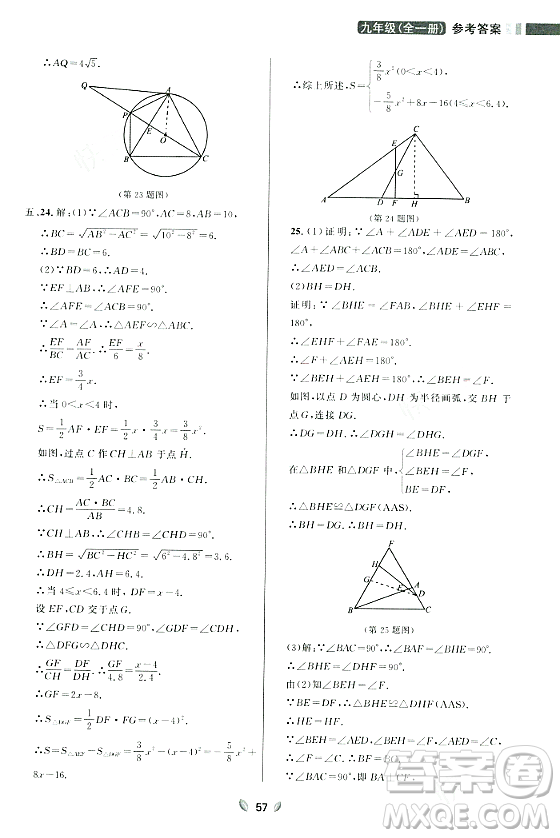 九年级(全一册) 参考答案
∴AQ=4√5.
Q
A
P
E
O
B
C
(第23题图)
五、24.解:(1)∵∠ACB=90°,AC=8,AB=10,
∴BC=√(AB²-AC²)=√(10²-8²)=6.
∴BD=BC=6.
(2)∵BD=6,∴AD=4.
∵EF⊥AB,∠ACB=90°,
∴∠AFE=∠ACB=90°.
∵∠A=∠A,∴△AEF∽△ABC.
∴EF/BC=AF/AC.∴EF/6=x/8.
∴EF=3/4x.
∴当0<x<4时,
S=1/2AF·EF=1/2x·3/4x=3/8x².
如图,过点C作CH⊥AB于点H.
∴S△ACB=1/2AC·BC=1/2AB·CH.
∴CH=AC·BC/AB=4.8.
∵CH⊥AB,∴∠CHD=90°.
∴BH=√(BC²-HC²)=√(6²-4.8²)=3.6.
∴DH=2.4.
∴当4≤x<6.4时,DF=x-4.
设EF,CD交于点G.
∵∠GFD=∠CHD=90°,∠GDF=∠CDH,
∴△DFG∽△DHC.
∴GF/CH=DF/DH.∴GF/4.8=(x-4)/2.4.
∴GF=2x-8.
∴S△DGF=1/2DF·FG=(x-4)².
∴S=S△AEF-S△DGF=3/8x²-(x-4)²=-5/8x²+
8x-16.
∴综上所述,S={3/8x²(0<x<4),
-5/8x²+8x-16(4≤x<6.4).
C
E
G
A
D
F
H
B
(第24题图)
25.(1)证明:∵∠A+∠ADE+∠AED=180°,
∠A+∠ABC+∠ACB=180°,∠ADE=∠ACB,
∴∠AED=∠ABC.
(2)BH=DH.
证明:∵∠BHE=∠HED,∠HED=∠FAC,
∴∠BHE=∠FAC.
∵∠FAC+∠FAE=180°,
∴∠BHE+∠FAE=180°.
∴∠BEH+∠AEH=180°,∴∠BEH=∠F.
如图,以点D为圆心,DH为半径画弧,交BF于
点G,连接DG.
∴DG=DH.∴∠DHG=∠DGH.
∴∠BHE=∠DGF.
在△BHE和△DGF中,{∠BHE=∠DGF,
∠BEH=∠F,
BE=DF,
∴△BHE≌△DGF(AAS).
∴BH=DG.∴BH=DH.
F
H
G
E
A
D
B
C
(第25题图)
(3)解:∵∠BAC=90°,∴∠BAF=∠BAC=90°.
∴∠BHE=∠FAC=90°.
由(2)知∠BEH=∠F,
57